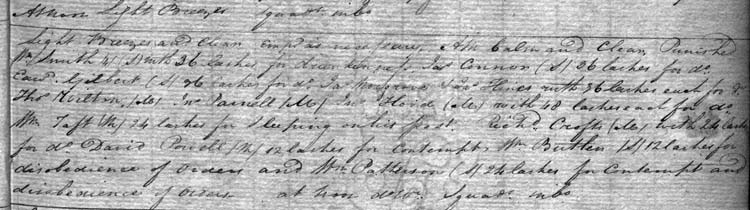 At Noon Light Breezes Squadn in Co
Light Breezes and Clear Empd as necessary. At 4 Calm and Clear, Punished
Wm Smith 4 (S) with 36 lashes for Drunkenness. Jas Connor (S) 26 lashes for do.
Edwd Gilbert (S) 36 lashes for do. Jas Jas Hines with 36 lashes each for do
Thos Hilton (M) Jno Parnell (M) Jno Flood (M) with 48 lashes each for do
Wm Taft (M) 24 lashes for Sleeping on his post. Richd Crofts (M) with 24 lashes
for do David Powell (M) 12 lashes for Contempt. Wm Button (S) 12 lashes for
disobedience of Orders and Wm Patterson (S) 24 lashes for Contempt and
disobedience of Orders at Noon do Wr. Squadn in Co